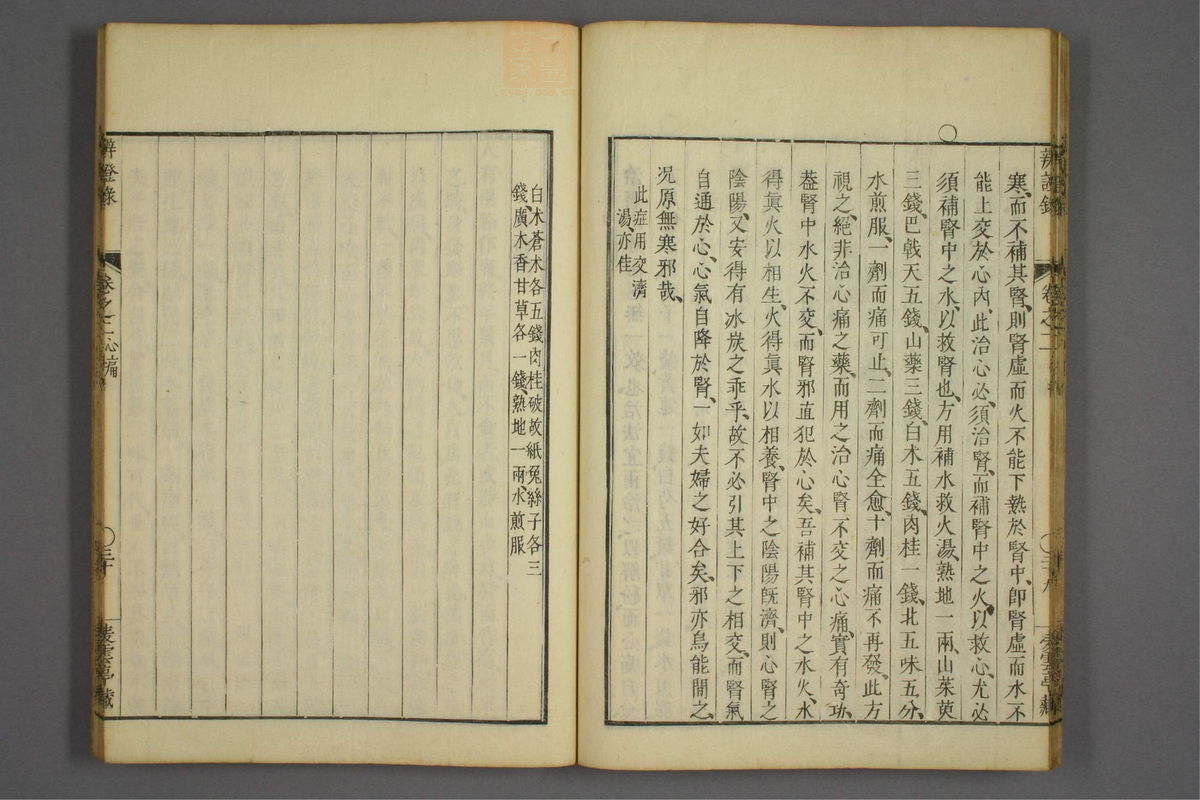 寒、而不補其腎、則腎虛而火不能下熱於腎中、卽腎虛而水不
能上交於心內、此治心必須治腎、而補腎中之火、以救心、尤必
須補腎中之水、以救腎也、方用補水救火湯、熟地一兩、山茱萸
三錢、巴戟天五錢、山藥三錢、白朮五錢、肉桂一錢、北五味五分、
水煎服、一劑而痛可止、二劑而痛全愈、十劑而痛不再發、此方
視之、絕非治心痛之藥、而用之治心腎不交之心痛、實有奇功、
葢腎中水火不交、而腎邪直犯於心矣、吾補其腎中之水火、水
得眞火以相生、火得眞水以相養、腎中之陰陽旣濟、則心腎之
陰陽、又安得有冰炭之乖乎、故不必引其上下之相交、而腎氣
自通於心、心氣自降於腎、一如夫婦之好合矣、邪亦烏能間之、
况原無寒邪哉、
此症用交濟
湯、亦佳
白朮蒼朮各五錢肉桂破故紙兔絲子各三
錢、廣木香甘草各一錢、熟地一兩、水煎服
辨證錄
卷之二
辨證錄
卷之二心痛
三十